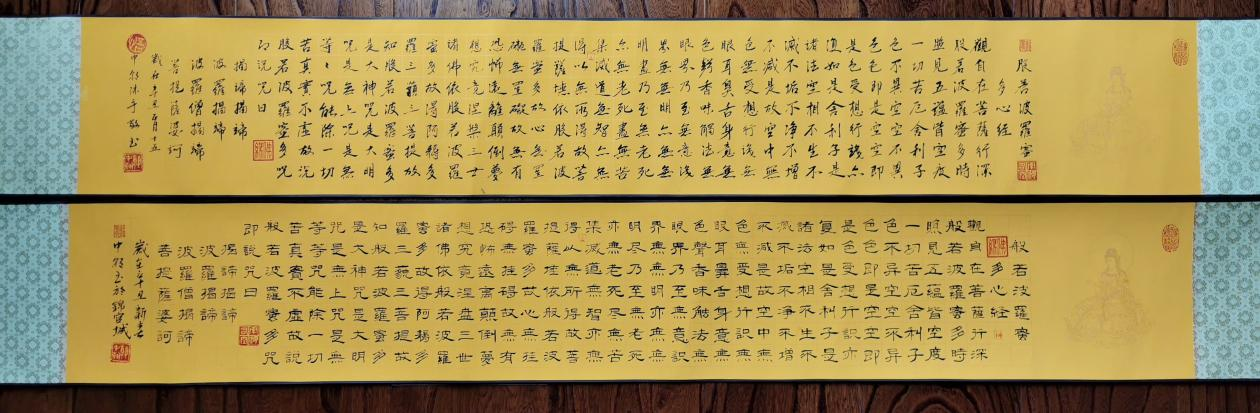 般若波羅蜜
多心經
觀自在菩薩行深
般若波羅蜜多時
照見五蘊皆空度
一切苦厄舍利子
色不異空空不異
色色即是空空即
是色受想行識亦
復如是舍利子是
諸法空相不生不
滅不垢不淨不增
不減是故空中無
色無受想行識無
眼耳鼻舌身意無
色聲香味觸法無
眼界乃至無意識
界無無明亦無無
明盡乃至無老死
亦無老死盡無苦
集滅道無智亦無
得以無所得故菩
提薩埵依般若波
羅蜜多故心無罣
礙無罣礙故無有
恐怖遠離顛倒夢
想究竟涅槃三世
諸佛依般若波羅
蜜多故得阿耨多
羅三藐三菩提故
知般若波羅蜜多
是大神咒是大明
咒是無上咒是無
等々咒能除一切
苦真實不虛故說
般若波羅蜜多咒
即說咒曰
揭諦揭諦
波羅揭諦
波羅僧揭諦
菩提薩婆訶
歲在辛丑月十五
中沐手敬書
般若波羅蜜
多心經
觀自在菩薩行深
般若波羅蜜多時
照見五蘊皆空度
一切苦厄舍利子
色不异空空不异
色色即是空空即
是色受想行識亦
復如是舍利子是
諸法空相不生不
滅不垢不淨不增
不減是故空中無
色無受想行識無
眼耳鼻舌身意無
色聲香味觸法無
眼界乃至無意識
界無無明亦無無
明盡乃至無老死
亦無老死盡無苦
集滅道無智亦無
得以無所得故菩
提薩埵依般若波
羅蜜多故心無挂
碍無挂碍故無有
恐怖遠離顛倒夢
想究竟涅盘三世
諸佛依般若波羅
蜜多故得阿耨多
羅三藐三菩提故
知般若波羅蜜多
是大神咒是大明
咒是無上咒是無
等等咒能除一切
苦真實不虛故說
般若波羅蜜多咒
即說咒曰
揭諦揭諦
波羅揭諦
波羅僧揭諦
菩提薩婆訶
歲在辛丑新春
中書於錦官城